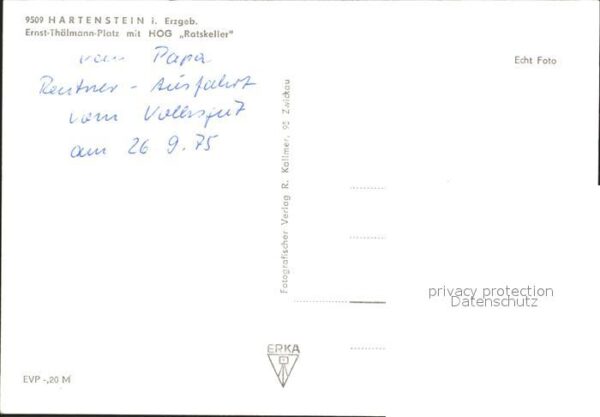 9509 HARTENSTEIN i. Erzgeb.
Ernst-Thälmann-Platz mit HOG „Ratskeller"
Echt Foto
von Papa
Rentner - Ausfahrt
vom Volksgut
am 26 9.75
Fotografischer Verlag R. Kallmer, 95 Zwickau
privacy protection
Datenschutz
ERKA
EVP -,20 M